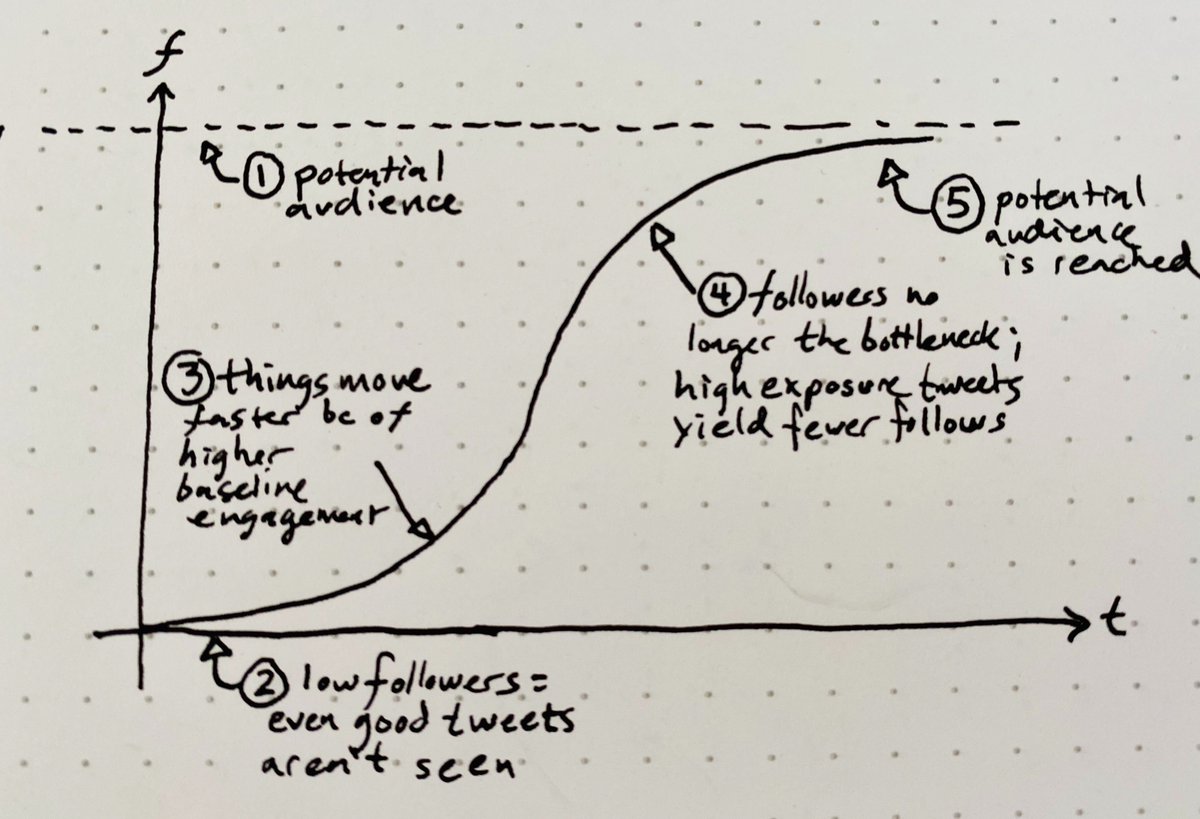 f
① potential
audience
⑤ potential
audience
is reached
④ followers no
longer the bottleneck;
high exposure tweets
yield fewer follows
③ things move
faster bc of
higher
baseline
engagement
t
② low followers =
even good tweets
aren't seen